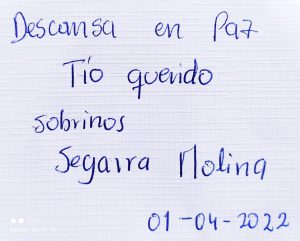 Descansa en Paz
Tío querido
sobrinos
Segarra Molina
01-04-2022